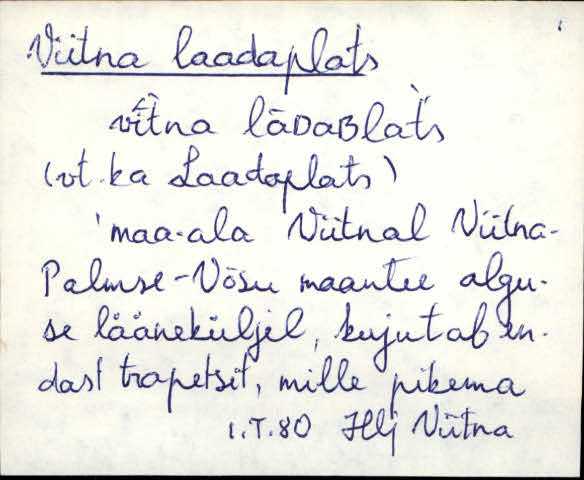 Viitna laadaplats
vi̬i̬tna lāDaBlat̀s
(vt. ka Laadaplats)
'maa-ala Viitnal Viitna-
Palmse-Võsu maantee algu-
se lääneküljel, kujutab en-
dast trapetsit, mille pikema
1.T.80 Hlj Viitna